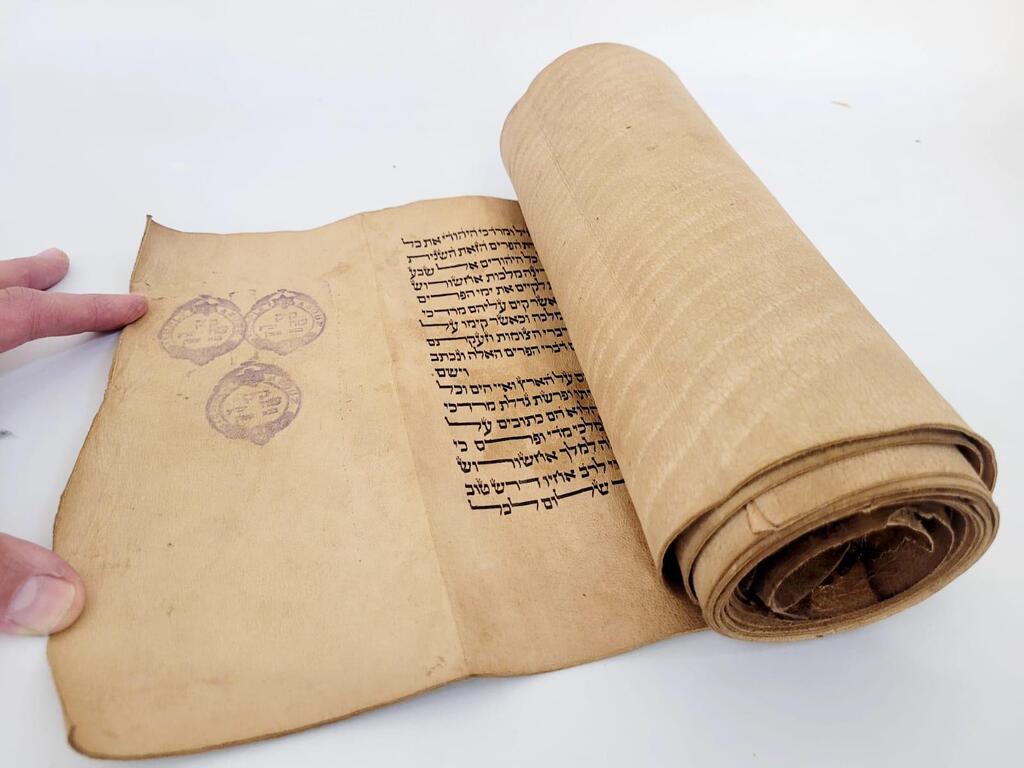 ומרדכי היהודי את כל
הפרים הזאת השנית
כל היהודים אל שבע
מלכות אחשורוש
לקיים את ימי הפרים
כאשר קים עליהם מרדכי
וכאשר קימו על
דברי הצומות וזעקתם
דברי הפרים האלה ונכתב
וישם
על הארץ ואיי הים וכל
ופרשת גדלת מרדכי
הלוא הם כתובים על
מלכי מדי ופרס כי
למלך אחשורוש
לרב אחיו דרש טוב
שלום לכל